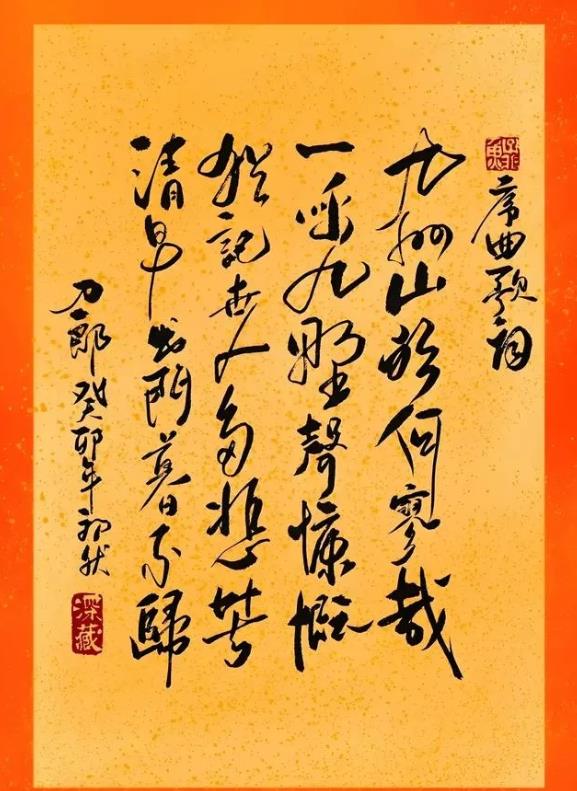 序曲歌詞
九州山歌何寥哉
一呼九野聲慷慨
猶記世人多悲苦
清早出門暮不歸
刀郎 癸卯年初
深藏